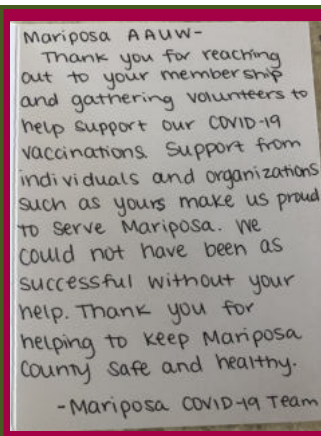 Mariposa AAUW-
Thank you for reaching
out to your membership
and gathering volunteers to
help support our COVID-19
vaccinations. Support from
individuals and organizations
such as yours make us proud
to serve Mariposa. We
could not have been as
successful without your
help. Thank you for
helping to keep Mariposa
County safe and healthy.
-Mariposa COVID-19 Team